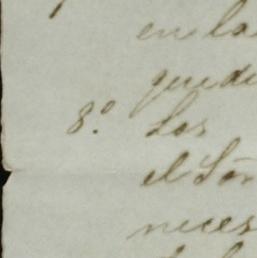 en la
quede
8.º Los
el Señ
neces